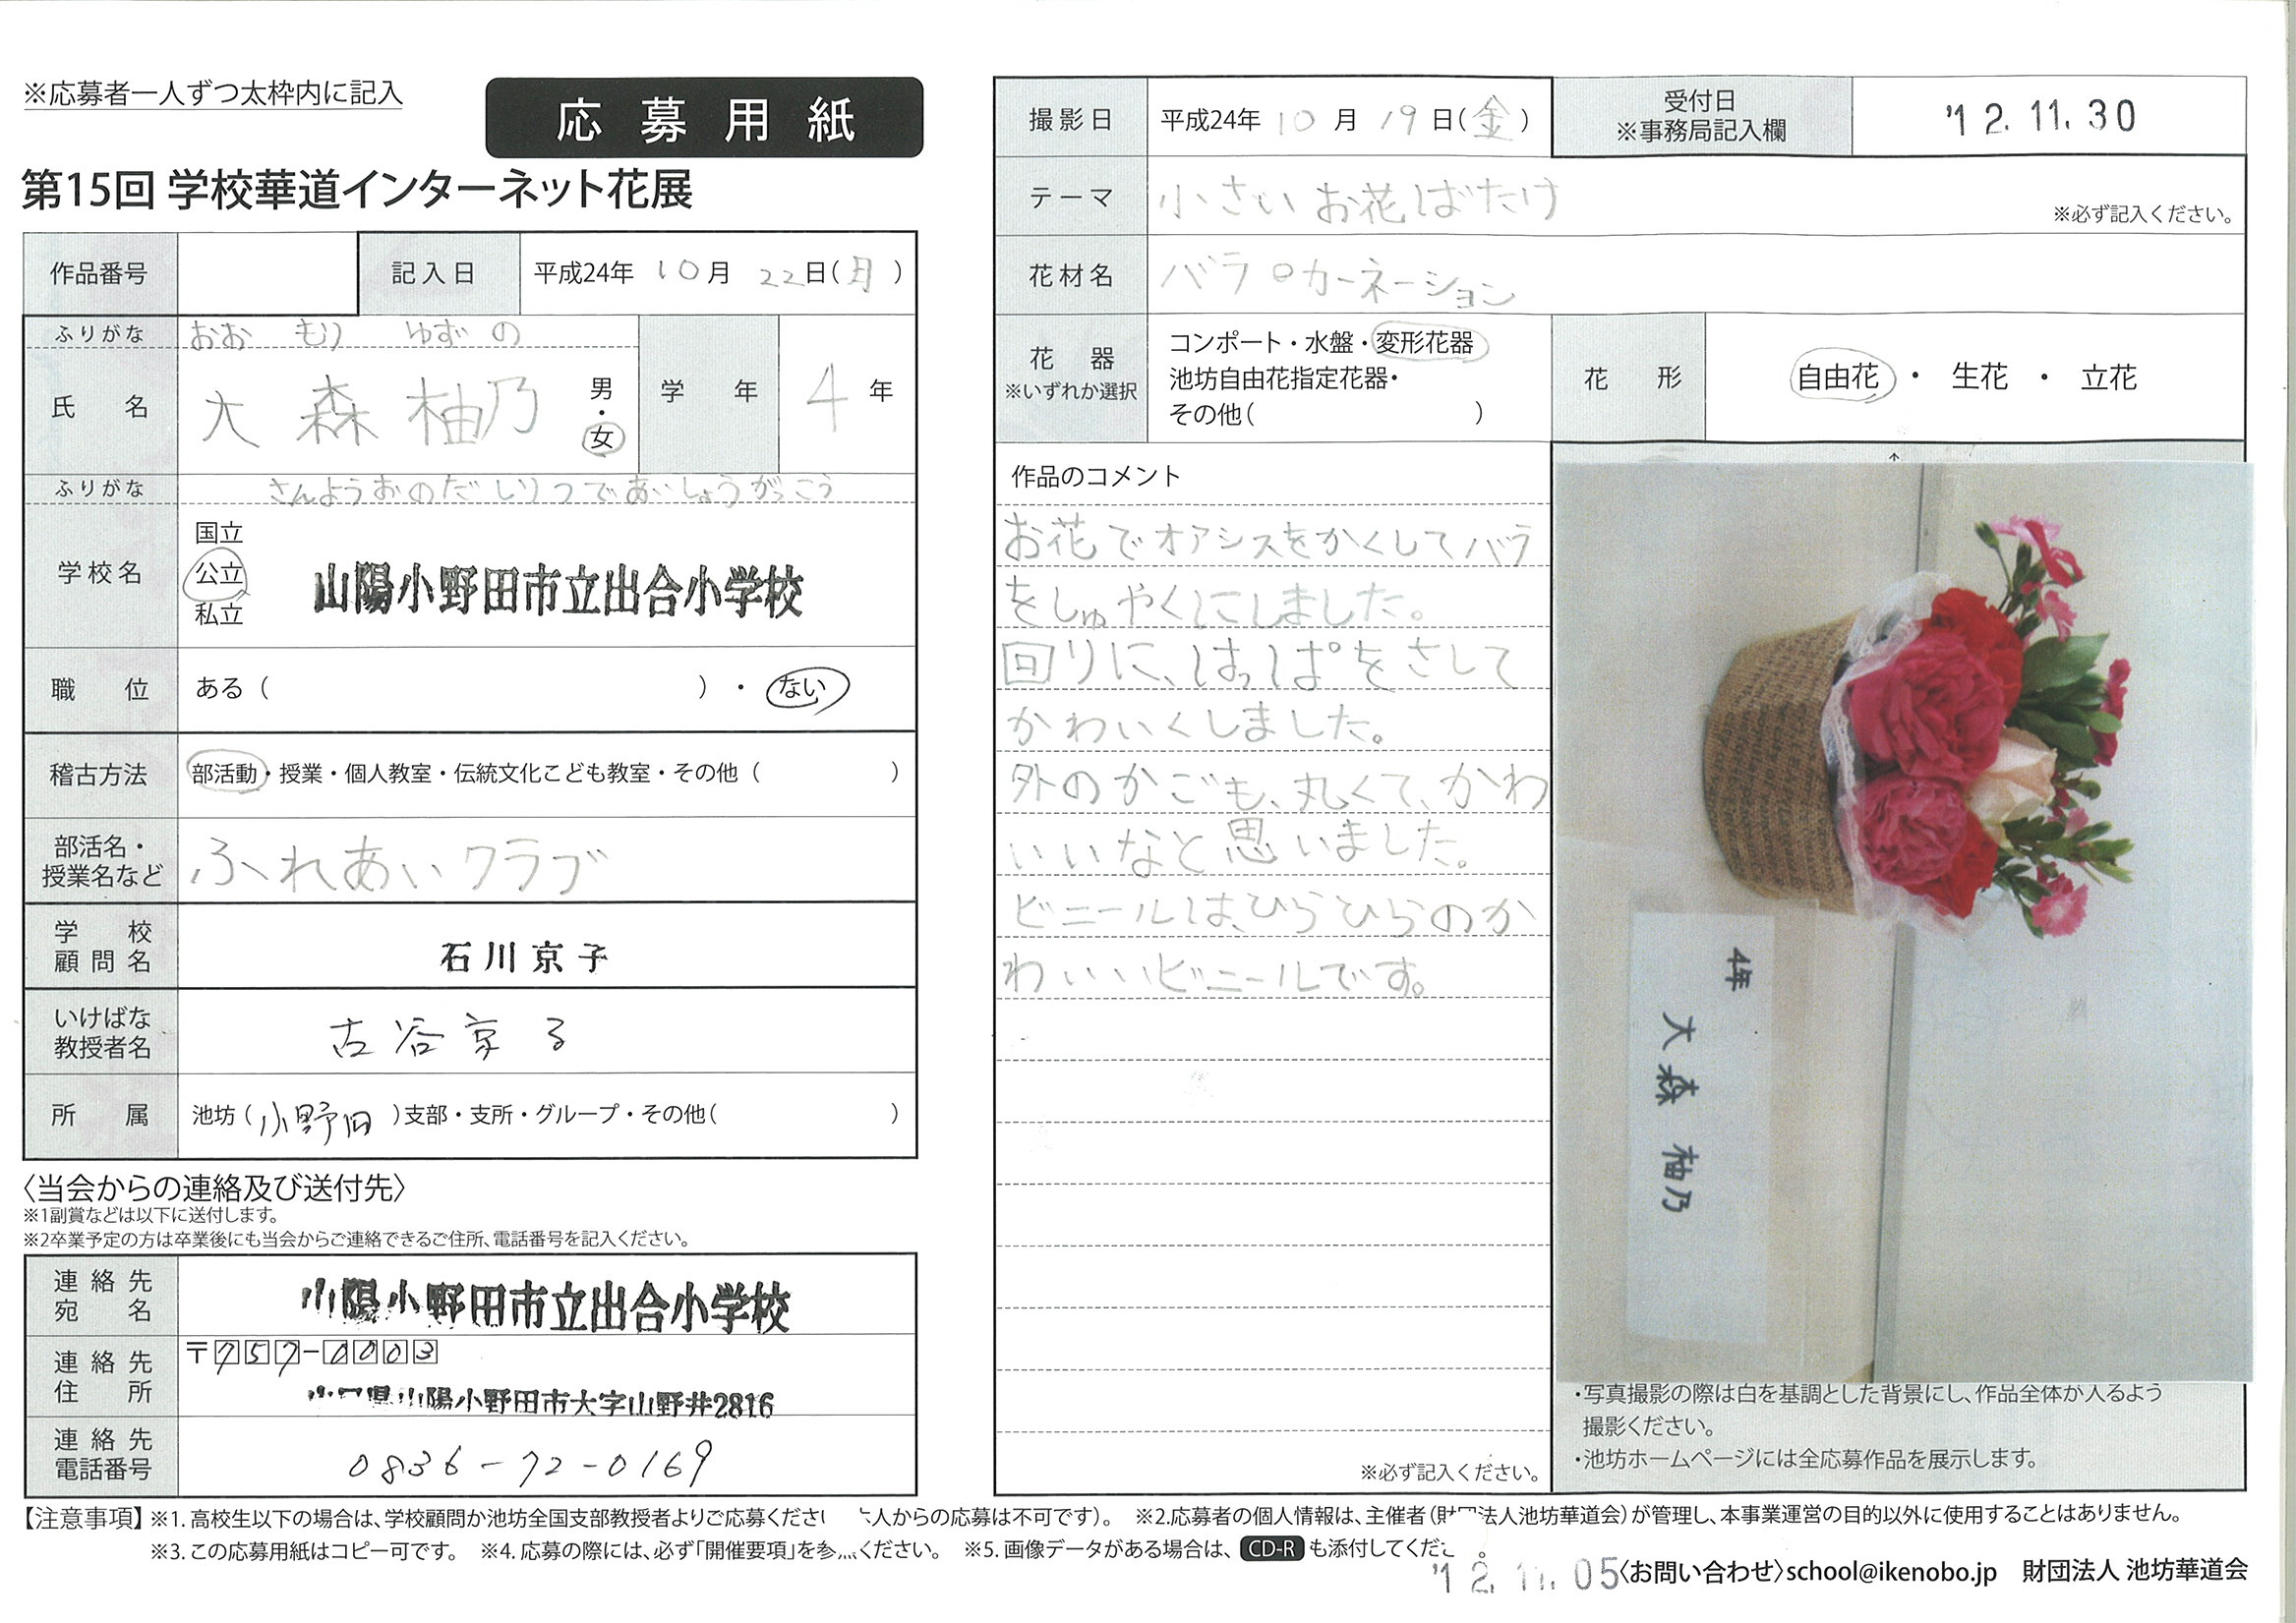 ※応募者一人ずつ太枠内に記入
応募用紙
第15回 学校華道インターネット花展
作品番号
記入日 平成24年 10月 22日(月)
ふりがな おお もり ゆずの
氏名 大森柚乃 男・女
学年 4年
ふりがな さんようおのだしりつであいしょうがっこう
学校名 国立 公立 私立 山陽小野田市立出合小学校
職位 ある( )・ない
稽古方法 部活動・授業・個人教室・伝統文化こども教室・その他( )
部活名・授業名など ふれあいクラブ
学校顧問名 石川京子
いけばな教授者名 古谷京る
所属 池坊(小野田)支部・支所・グループ・その他( )
〈当会からの連絡及び送付先〉
※1副賞などは以下に送付します。
※2卒業予定の方は卒業後にも当会からご連絡できるご住所、電話番号を記入ください。
連絡先宛名 山陽小野田市立出合小学校
連絡先住所 〒757-0003
山陽小野田市大字山野井2816
連絡先電話番号 0836-72-0169
撮影日 平成24年 10月 19日(金)
受付日 ※事務局記入欄 '12.11.30
テーマ 小さいお花ばたけ ※必ず記入ください。
花材名 バラ カーネーション
花器 ※いずれか選択 コンポート・水盤・変形花器
池坊自由花指定花器・
その他( )
花形 自由花・生花・立花
作品のコメント
お花でオアシスをかくしてバラ
をしゅやくにしました。
回りに、はっぱをさして
かわいくしました。
外のかごも、丸くて、かわ
いいなと思いました。
ビニールは、ひらひらのか
わいいビニールです。
※必ず記入ください。
4年 大森 柚乃
・写真撮影の際は白を基調とした背景にし、作品全体が入るよう
撮影ください。
・池坊ホームページには全応募作品を展示します。
【注意事項】※1. 高校生以下の場合は、学校顧問か池坊全国支部教授者よりご応募くださ 人からの応募は不可です)。 ※2.応募者の個人情報は、主催者(財団法人池坊華道会)が管理し、本事業運営の目的以外に使用することはありません。
※3. この応募用紙はコピー可です。 ※4. 応募の際には、必ず「開催要項」を参 ください。 ※5. 画像データがある場合は、CD-Rも添付してくだ
'12.11.05
〈お問い合わせ〉school@ikenobo.jp 財団法人 池坊華道会